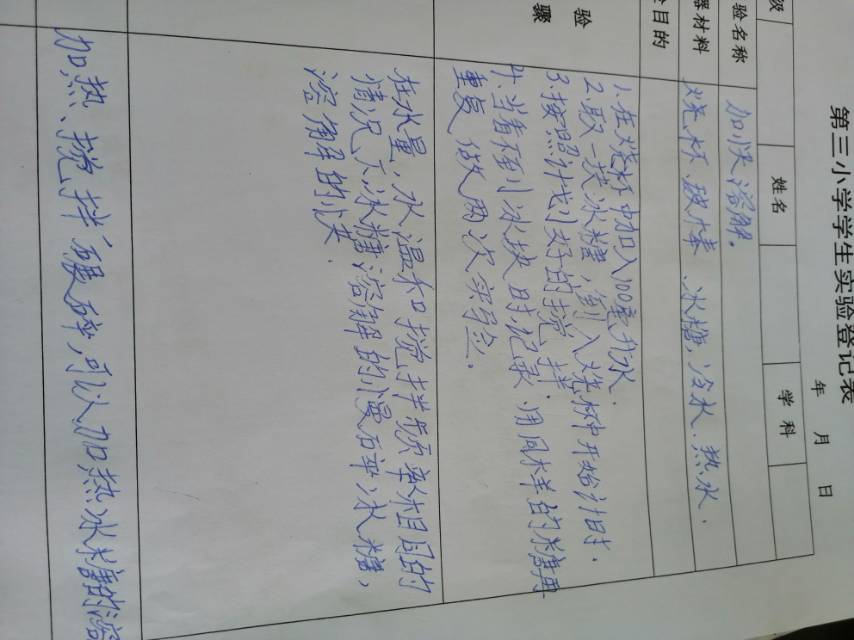 第三小学学生实验登记表
年 月 日
级 姓名 学科
验名称 加快溶解。
器材料 烧杯、玻棒、冰糖、冷水、热水.
目的
验
骤
1.在烧杯中加入100毫升水.
2.取一块冰糖,倒入烧杯中开始计时.
3.按照计划好的搅拌.
4.当看不到冰块时记录.用同样的糖再
重复做两次实验.
在水量,水温和搅拌频率相同的
情况下冰糖溶解的慢碎冰糖,
溶解的快.
加热、搅拌、碾碎,可以加热冰糖的溶